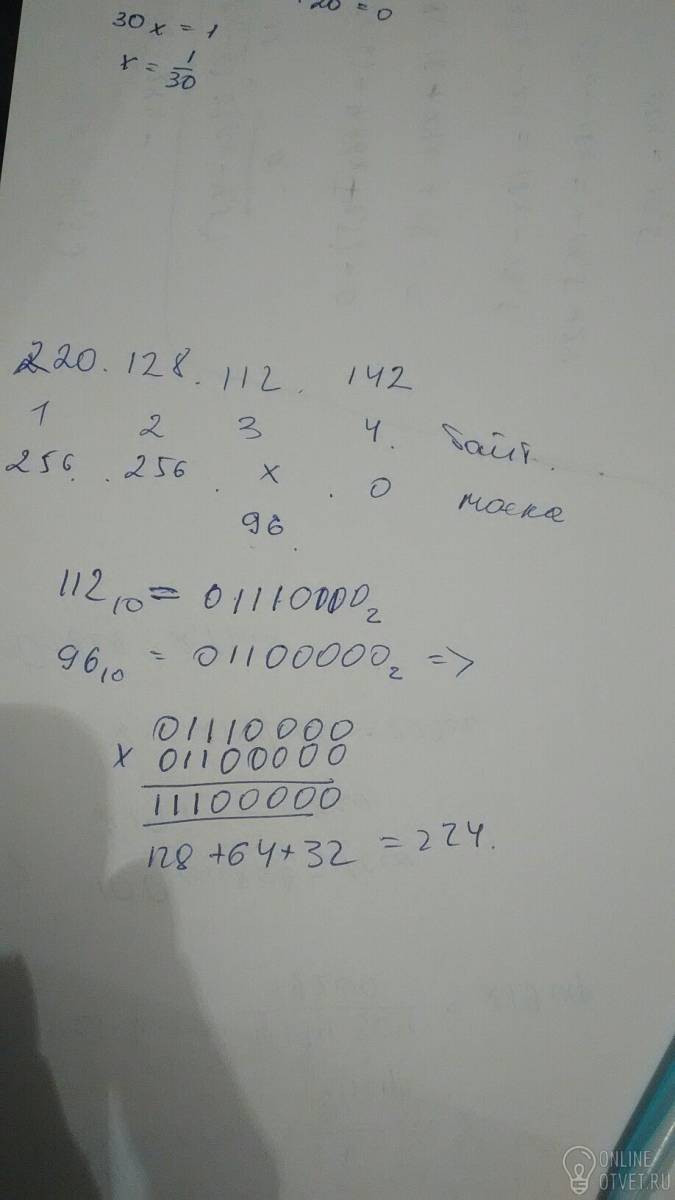 20 = 0
30x = 1
x = 1/30
220. 128. 112. 142
1 2 3 4. байт.
256. . 256 . x . 0 маска
96.
112₁₀ = 01110000₂
96₁₀ = 01100000₂ =>
01110000
x 01100000
11100000
128 + 64 + 32 = 224.
ONLINE
OTVET.RU